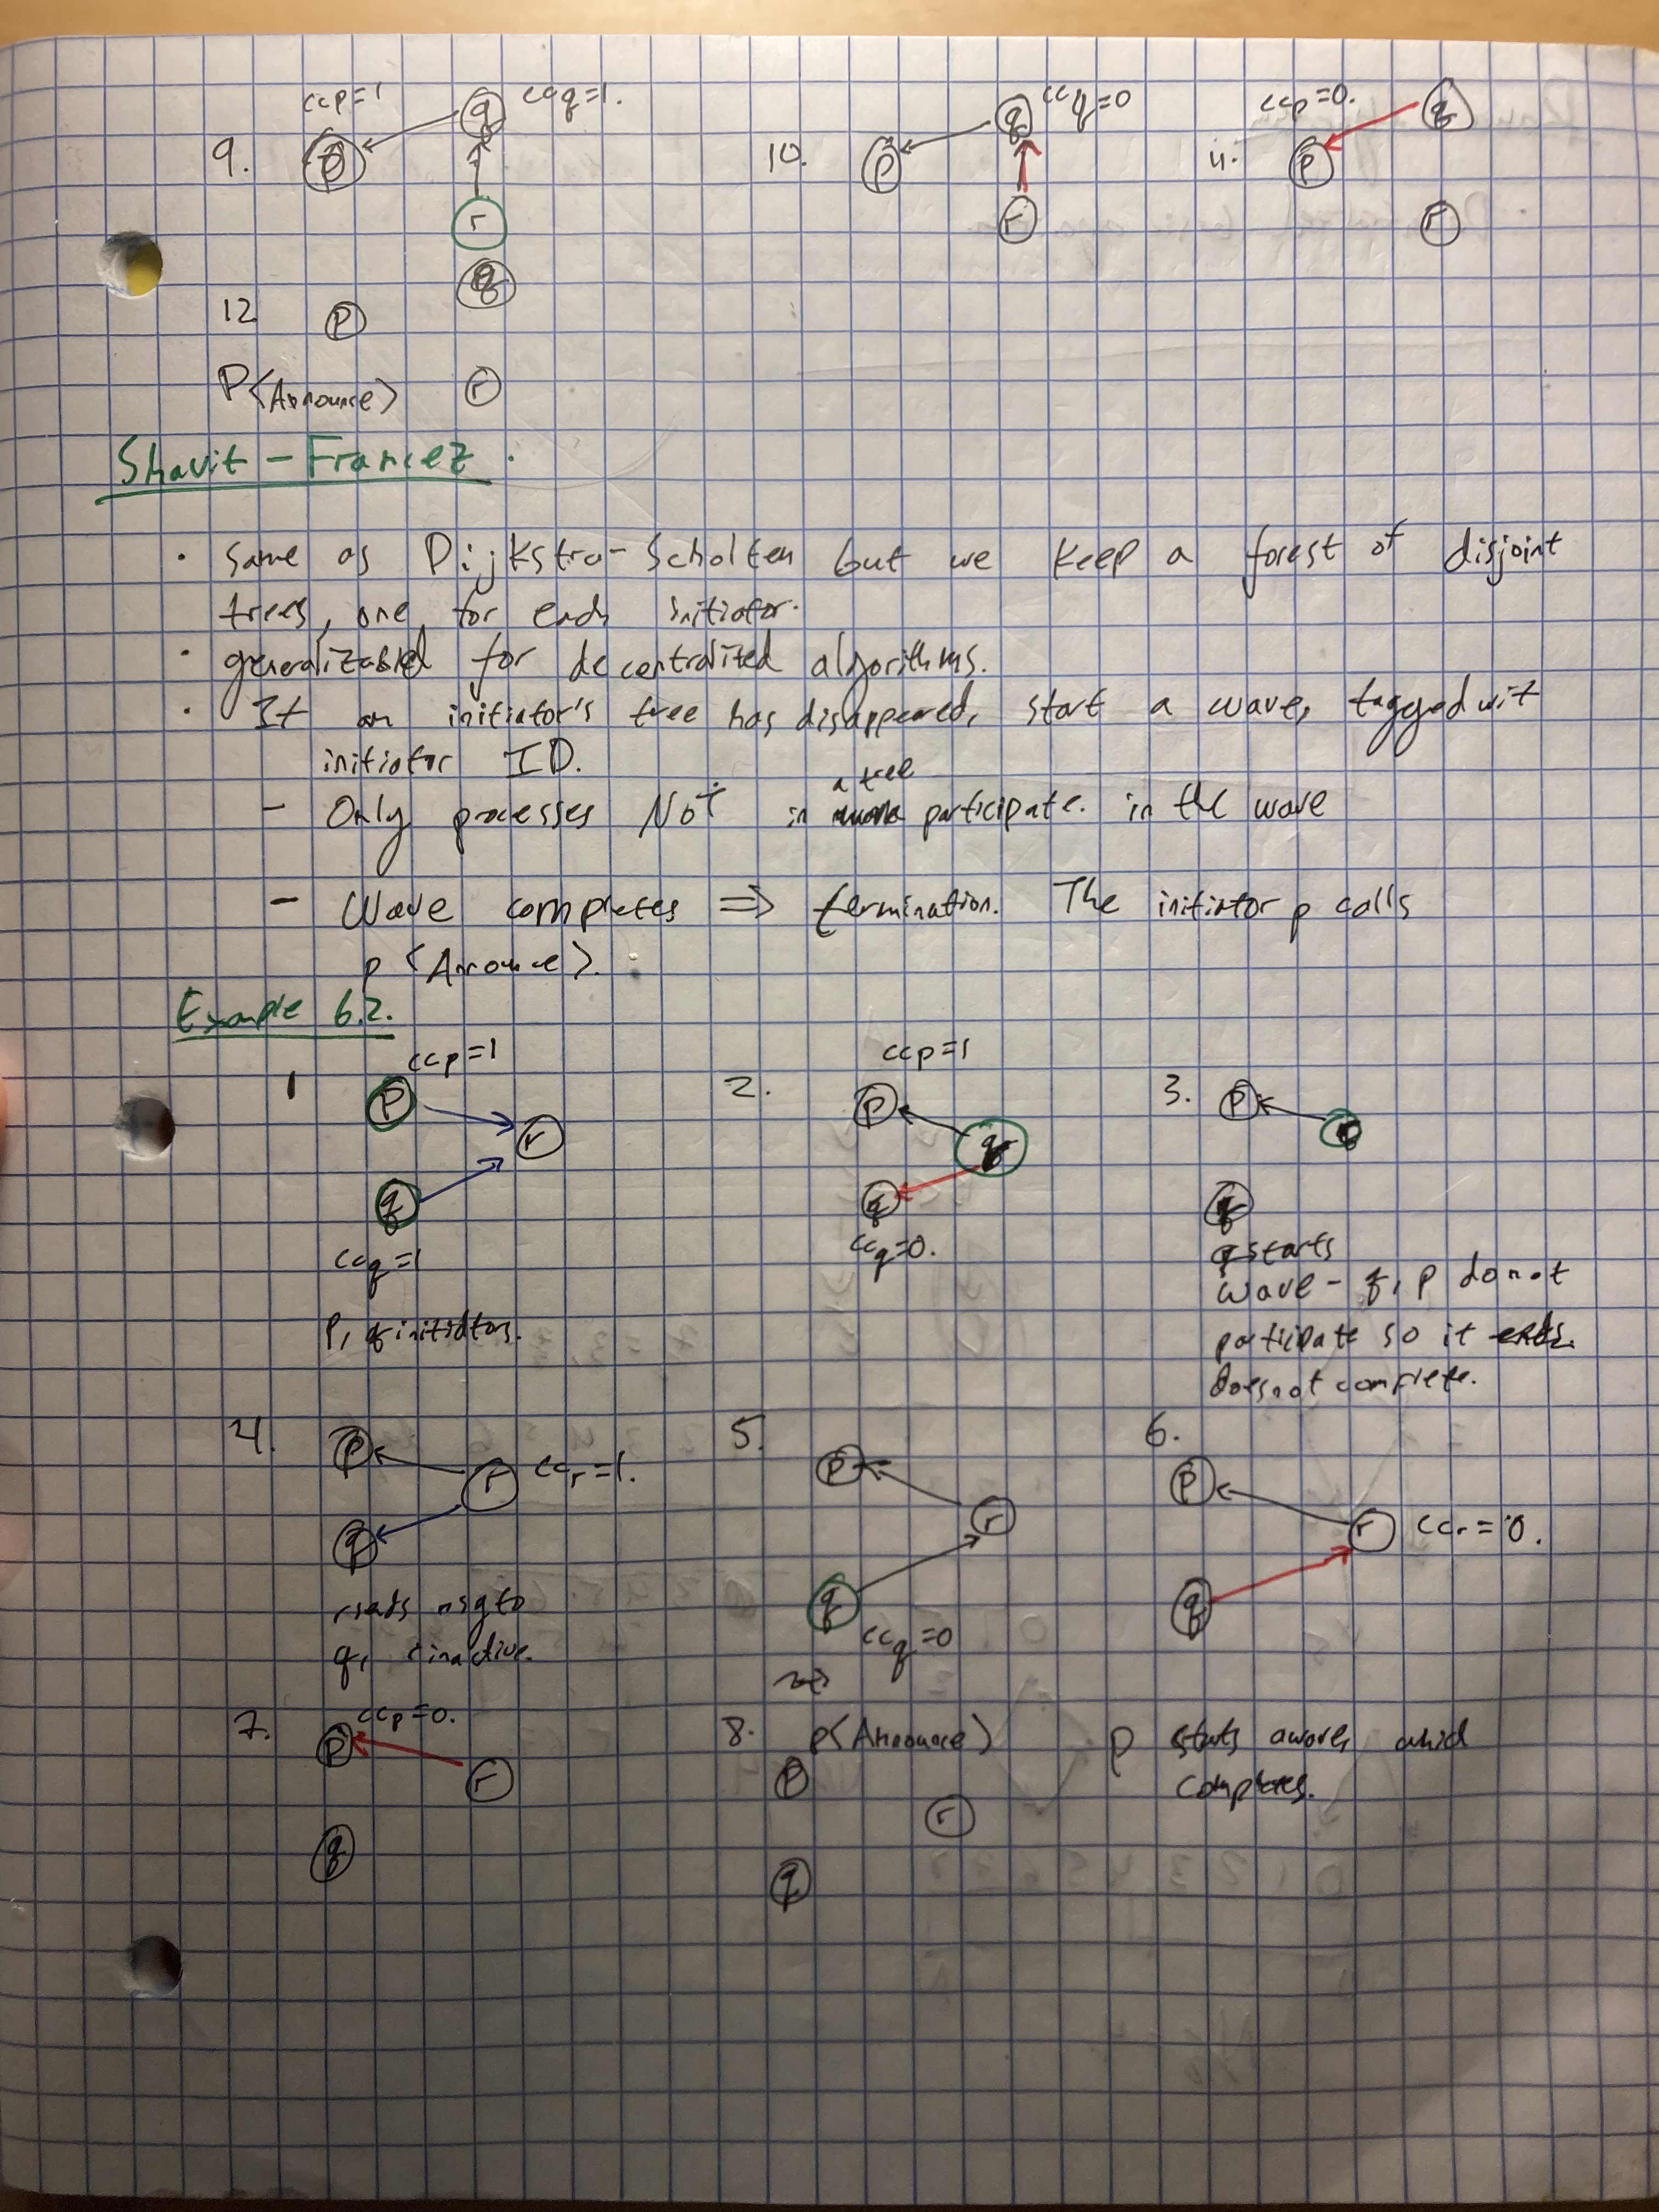 9. ccp=1 ccq=1.
p q r
10. ccq=0
p q r
11. ccp=0.
p q r
12 p q
P<Announce> r
Shavit-Francez.
· same as Dijkstra-Scholten but we keep a forest of disjoint
trees, one for each initiator.
· generalizable for decentralized algorithms.
· If an initiator's tree has disappeared, start a wave, tagged wit
initiator ID.
- Only processes NOT in a tree participate. in the wave
- Wave completes ⇒ termination. The initiator p calls
p <Announce>.
Example 6.2.
1 ccp=1
p r
q
ccq=1
p, q initiators.
2. ccp=1
p
q
ccq=0.
3. p
q
q starts
wave - q, p do not
participate so it
does not complete.
4. p
r ccr=1.
q
r sends msg to
q, r inactive.
5. p
r
q
ccq=0
6. p
r ccr=0.
q
7. ccp=0.
p r
q
8. p<Announce> p starts a wave, which
p completes.
r
q